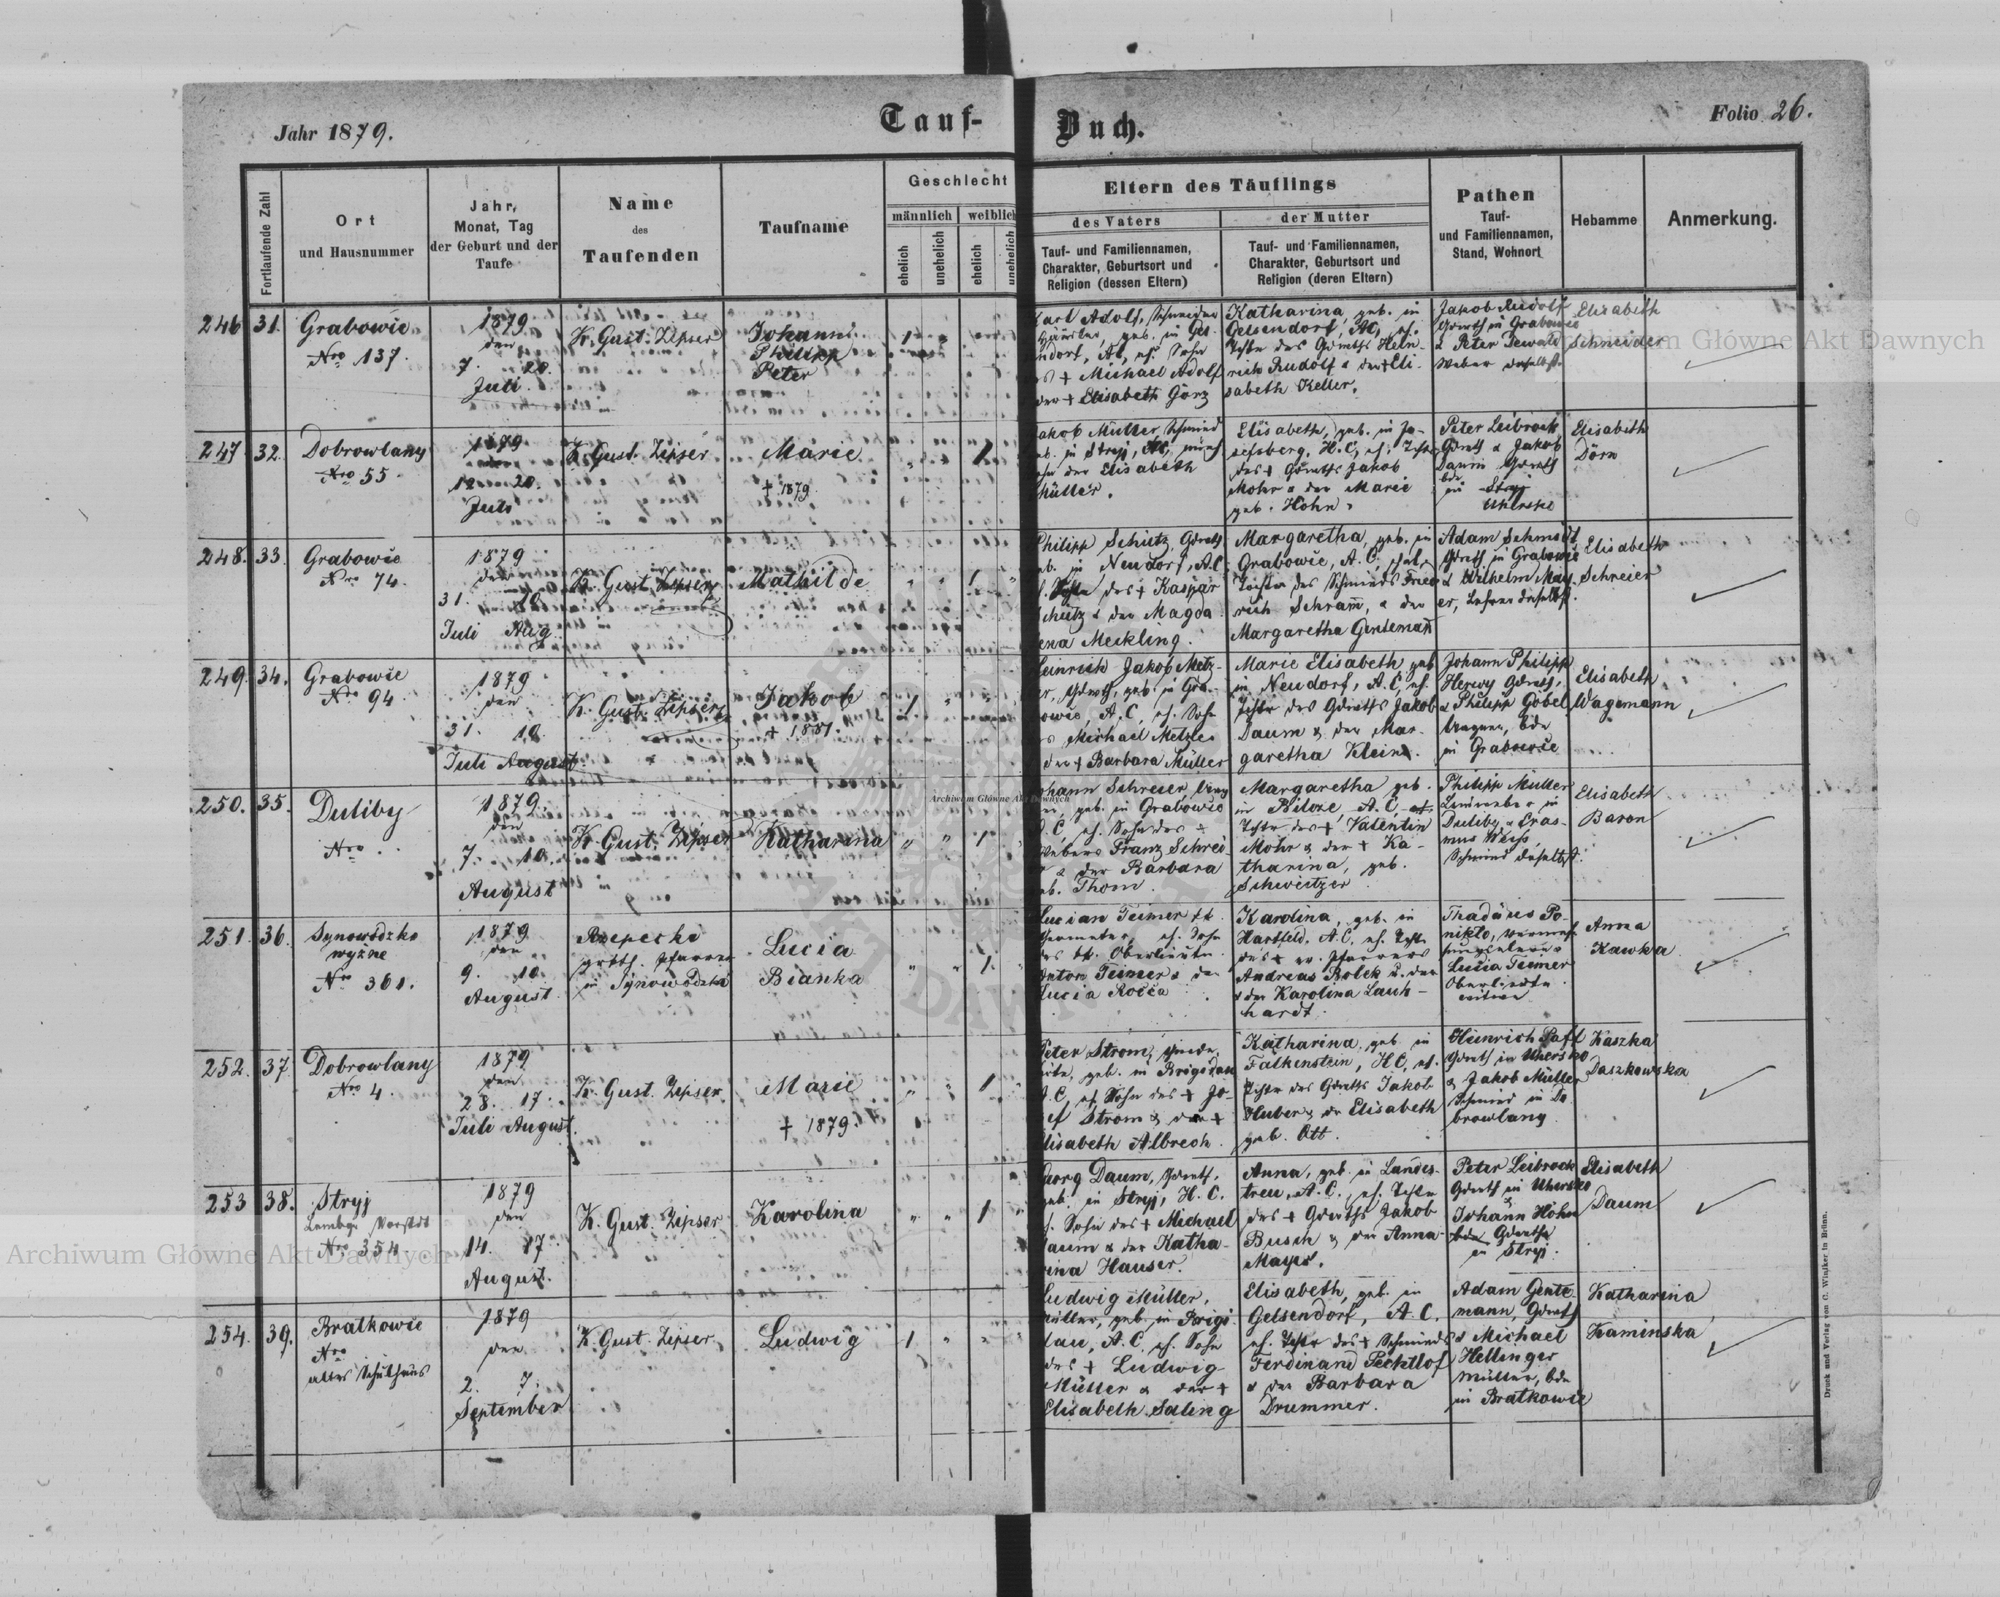 Jahr 1879.
Tauf-
Buch.
Folio 26.
Fortlaufende Zahl
Ort
und Hausnummer
Jahr,
Monat, Tag
der Geburt und der
Taufe
Name
des
Taufenden
Taufname
Geschlecht
männlich
weiblich
ehelich
unehelich
ehelich
unehelich
Eltern des Täuflings
des Vaters
Tauf- und Familiennamen,
Charakter, Geburtsort und
Religion (dessen Eltern)
der Mutter
Tauf- und Familiennamen,
Charakter, Geburtsort und
Religion (deren Eltern)
Pathen
Tauf-
und Familiennamen,
Stand, Wohnort
Hebamme
Anmerkung.
246 31.
Grabowie
Nro 137.
1879
den
7. 20.
Juli.
K. Gust. Zipser
Johann
Philipp
Peter
1
Karl Adolf, Schneider
geb. in Gel-
sendorf, AC, eh. Sohn
des + Michael Adolf
der + Elisabeth Görz
Katharina, geb. in
Gelsendorf, AC, eh.
Tochter des Grundws Hein-
rich Rudolf & der + Eli-
sabeth Keller.
Jakob Rudolf
Grundw in Grabowie
& Peter Sewald
Weber daselbst.
Elisabeth
Schneider
247 32.
Dobrowlany
Nro 55
1879
den
12. 20.
Juli
K. Gust. Zipser
Marie
+ 1879
1
Jakob Müller, Schmied
geb. in Stryj, AC,
Sohn der Elisabeth
Müller.
Elisabeth, geb. in Jo-
sefsberg, H.C., eh.
des + Jakob
Mohr & der Marie
geb. Höhn.
Peter Leibrock
& Jakob
Daum
bde
in Stryj
Uhersko
Elisabeth
Dorn
248. 33.
Grabowie
Nro 74.
1879
den
31. 10.
Juli Aug.
K. Gust. Zipser
Mathilde
1
Philipp Schütz,
geb. in Neudorf, AC
des + Kaspar
Schütz & der Magda
lena Meckling.
Margaretha, geb. in
Grabowie, A.C.,
Tochter des Schmieds Fried
rich Schram̄, & der
Margaretha Genteman̄
Adam Schmidt
in Grabowie
& Wilhelm May
er, Lehrer daselbst.
Elisabeth
Schreier
249. 34.
Grabowie
Nro 94
1879
den
31. 10.
Juli August.
K. Gust. Zipser
Jakob
+ 1881.
1
Heinrich Jakob Metz-
ler, geb. in Gra-
bowie, A.C. eh. Sohn
des Michael Metzler
der + Barbara Müller
Marie Elisabeth geb
in Neudorf, A.C. eh.
Tochter des Jakob
Daum & der Mar-
garetha Klein.
Johann Philipp
Herwy
& Philipp Göbel
Wagner, bde
in Grabowie
Elisabeth
Wagemann
250. 35.
Duliby
Nro.
1879.
den
7. 10.
August
K. Gust. Zipser
Katharina
1
Johann Schreier,
geb. in Grabowie
A.C., eh. Sohn des +
Webers Franz Schrei
er & der Barbara
geb. Thom.
Margaretha geb.
in Bilcze, A.C.
Tochter des + Valentin
Mohr & der + Ka-
tharina, geb.
Schweitzer
Philipp Müller
in
Duliby & Eras-
mus Weiss,
Schmied daselbst.
Elisabeth
Baron
251. 36.
Synowódzko
wyżne
Nro 361.
1879
den
9. 10.
August.
Rzepecki
Pfarrer
in Synowódzko
Lucia
Bianka
1
Lucian Teimer
Geometer, eh. Sohn
des kk. Oberlieutn.
Anton Teimer & der
Lucia Rocca
Karolina, geb. in
Hartfeld, A.C. eh. Tochter
des + ev. Pfarrers
Andreas Bolek & der
Karolina Lauk-
hardt.
Thadäus Po-
nikło,
Lucia Teimer
Anna
Kawka
252. 37.
Dobrowlany
Nro 4.
1879
den
28. 17.
Juli August.
K. Gust. Zipser.
Marie
+ 1879.
1
Peter Strom,
geb. in Brigidau
A.C. eh. Sohn des + Jo-
sef Strom & der +
Elisabeth Albrech.
Katharina, geb. in
Falkenstein, HC, eh.
Tochter des Jakob
Huber & der Elisabeth
geb. Ott.
Heinrich
in Uhersko
& Jakob Müller
Schmied in Do
browlany
Kaszka
Daszkowska
253 38.
Stryj
Lembgr Vorstdt
Nro 354
1879
den
14. 17.
August.
K. Gust. Zipser
Karolina
1
Georg Daum,
geb. in Stryj, H.C.
eh. Sohn des + Michael
Daum & der Katha-
rina Hauser.
Anna, geb. in Landes-
treu, A.C., eh. Tochter
des + Jakob
Busch & der Anna
Mayer.
Peter Leibrock
in Uhersko
&
Johann Höhn
bde
in Stryj.
Elisabeth
Daum
254. 39.
Bratkowie
Nro
altes Schulhaus
1879
den
2. 7.
September
K. Gust. Zipser
Ludwig
1
Ludwig Müller,
Müller, geb. in Brigi-
dau, A.C. eh. Sohn
des + Ludwig
Müller & der +
Elisabeth Saling
Elisabeth, geb. in
Gelsendorf, A.C.
eh. Tochter des + Schmieds
Ferdinand Pechtlof
& der Barbara
Drummer.
Adam Gente-
mann,
& Michael
Hellinger
Müller, bde
in Bratkowie
Katharina
Kaminska
Druck und Verlag von C. Winiker in Brünn.
Archiwum Główne Akt Dawnych
Archiwum Główne Akt Dawnych
Archiwum Główne Akt Dawnych